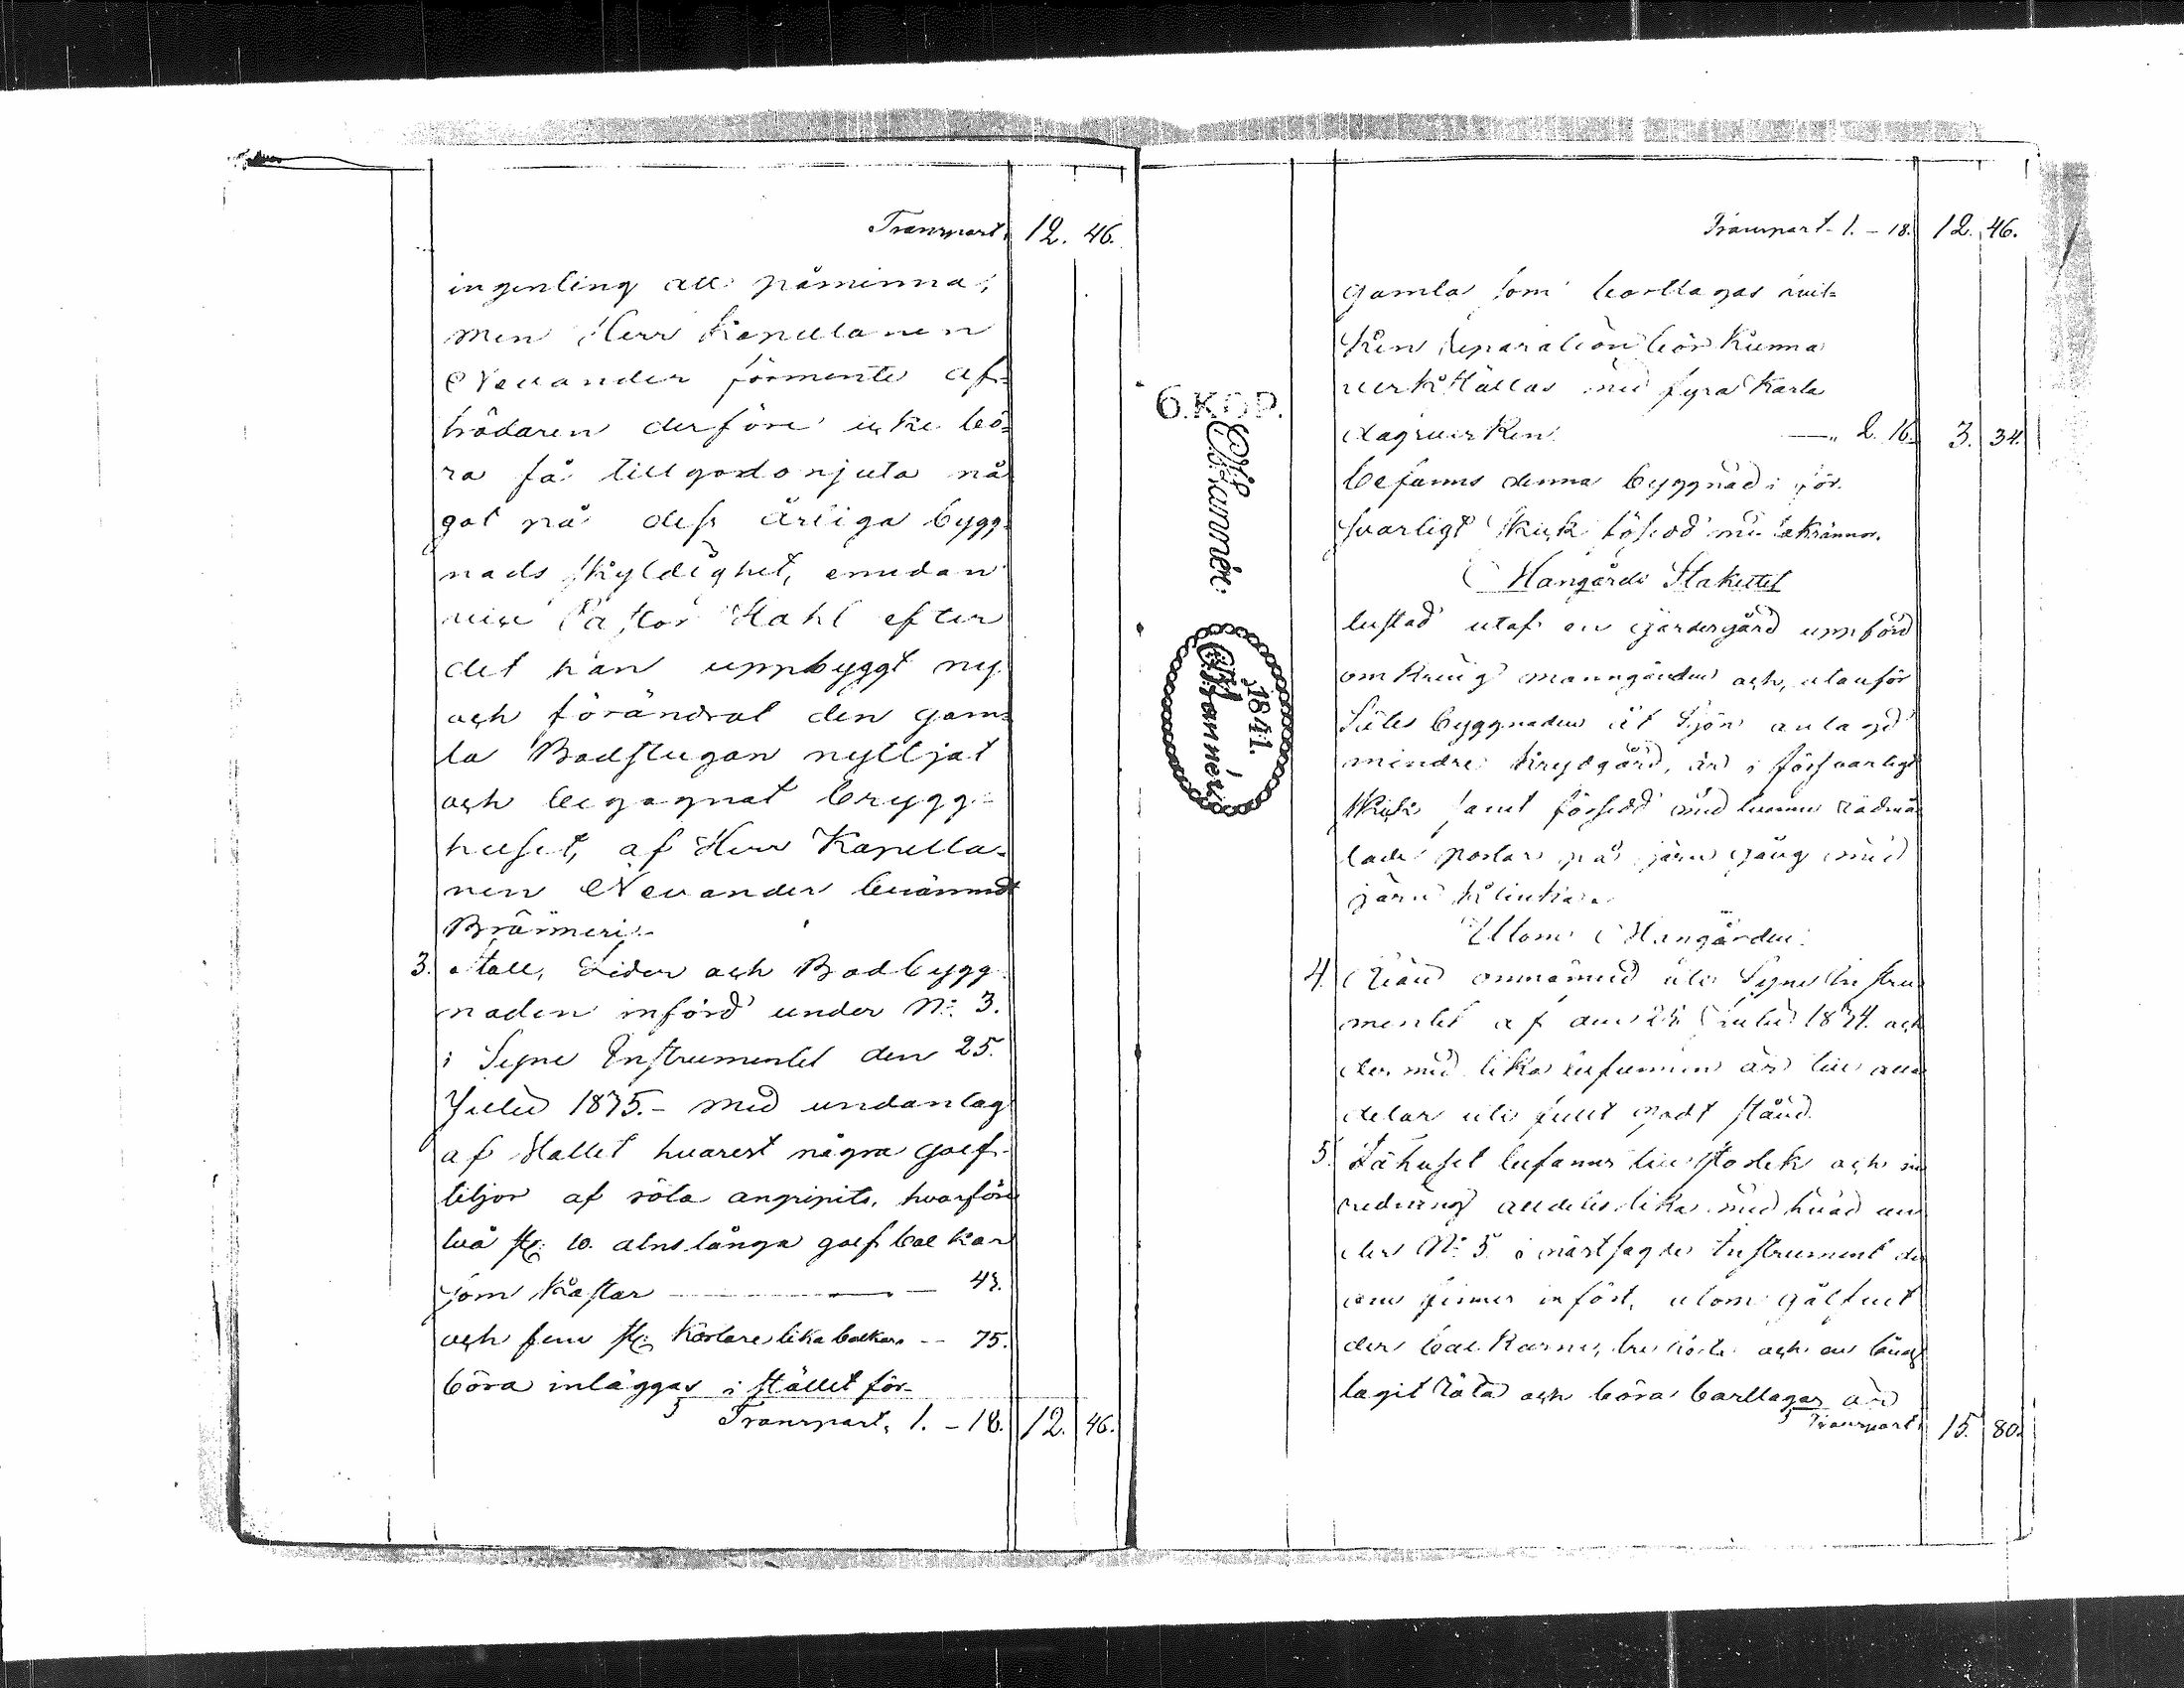 Transport. 12. 46.
ingenting att påminna;
men Herr Kapellanen
Nevander förmente af-
trädaren derföre icke bö-
ra få tillgodonjuta nå
got på dess årliga bygg-
nads skyldighet, emedan
vice Pastor Stahl efter
det han uppbyggt ny
och förändrat den gam-
la Badstugan nyttjat
och begagnat brygg-
huset, af Herr Kapella-
nen Nevander benämndt
Bränneri.
3. Stall, Lider och Bodbygg-
naden införd under N:o 3.
i Syne Instrumentet den 25.
Julii 1835. – med undantag
af Stallet hvarest några golf-
tiljor af röta angripits, hvarföre
två st: 10. alns långa golf balkar
som kåstar — 43.
och fem st: kortare lika balkar -- 75.
böra inläggas i stället för
Transport. 1. – 18. 12. 46.
6.KOP.
Chs. Mannér.
1841.
C. Mannér
Transport. 1. – 18. 12. 46.
gamla som borttagas hvil-
ken reparation bör kunna
verkställas med fyra karla
dagsverken — " 2. 16. 3. 34.
befanns denna byggnad i för-
svarligt skick försedd med takrännor.
Mangårds Staketet
bestod utaf en gärdesgård uppförd
omkring manngården och, utanför
Sütes byggnaden åt Sjön anlagd
mindre krydgård, är i försvarligt
skick samt försedd med tvenne rödmå
lade portar på järn gång med
järn klinkor.
Utom Mangården.
4. Riian omnämnd uti Syne Instru
mentet af den 25. Julii 1834. och
der med lika befunnen är till alla
delar uti fullt godt stånd.
5. Fähuset befanns till storlek och in
redning alldeles lika med hvad un
der N:o 5. i närtsagde Instrument der
om finnes infört, utom gålfvet
der balkarne, tre hörte och en bänk
tagit röta och böra borttagas och
Transport. 15. 80.